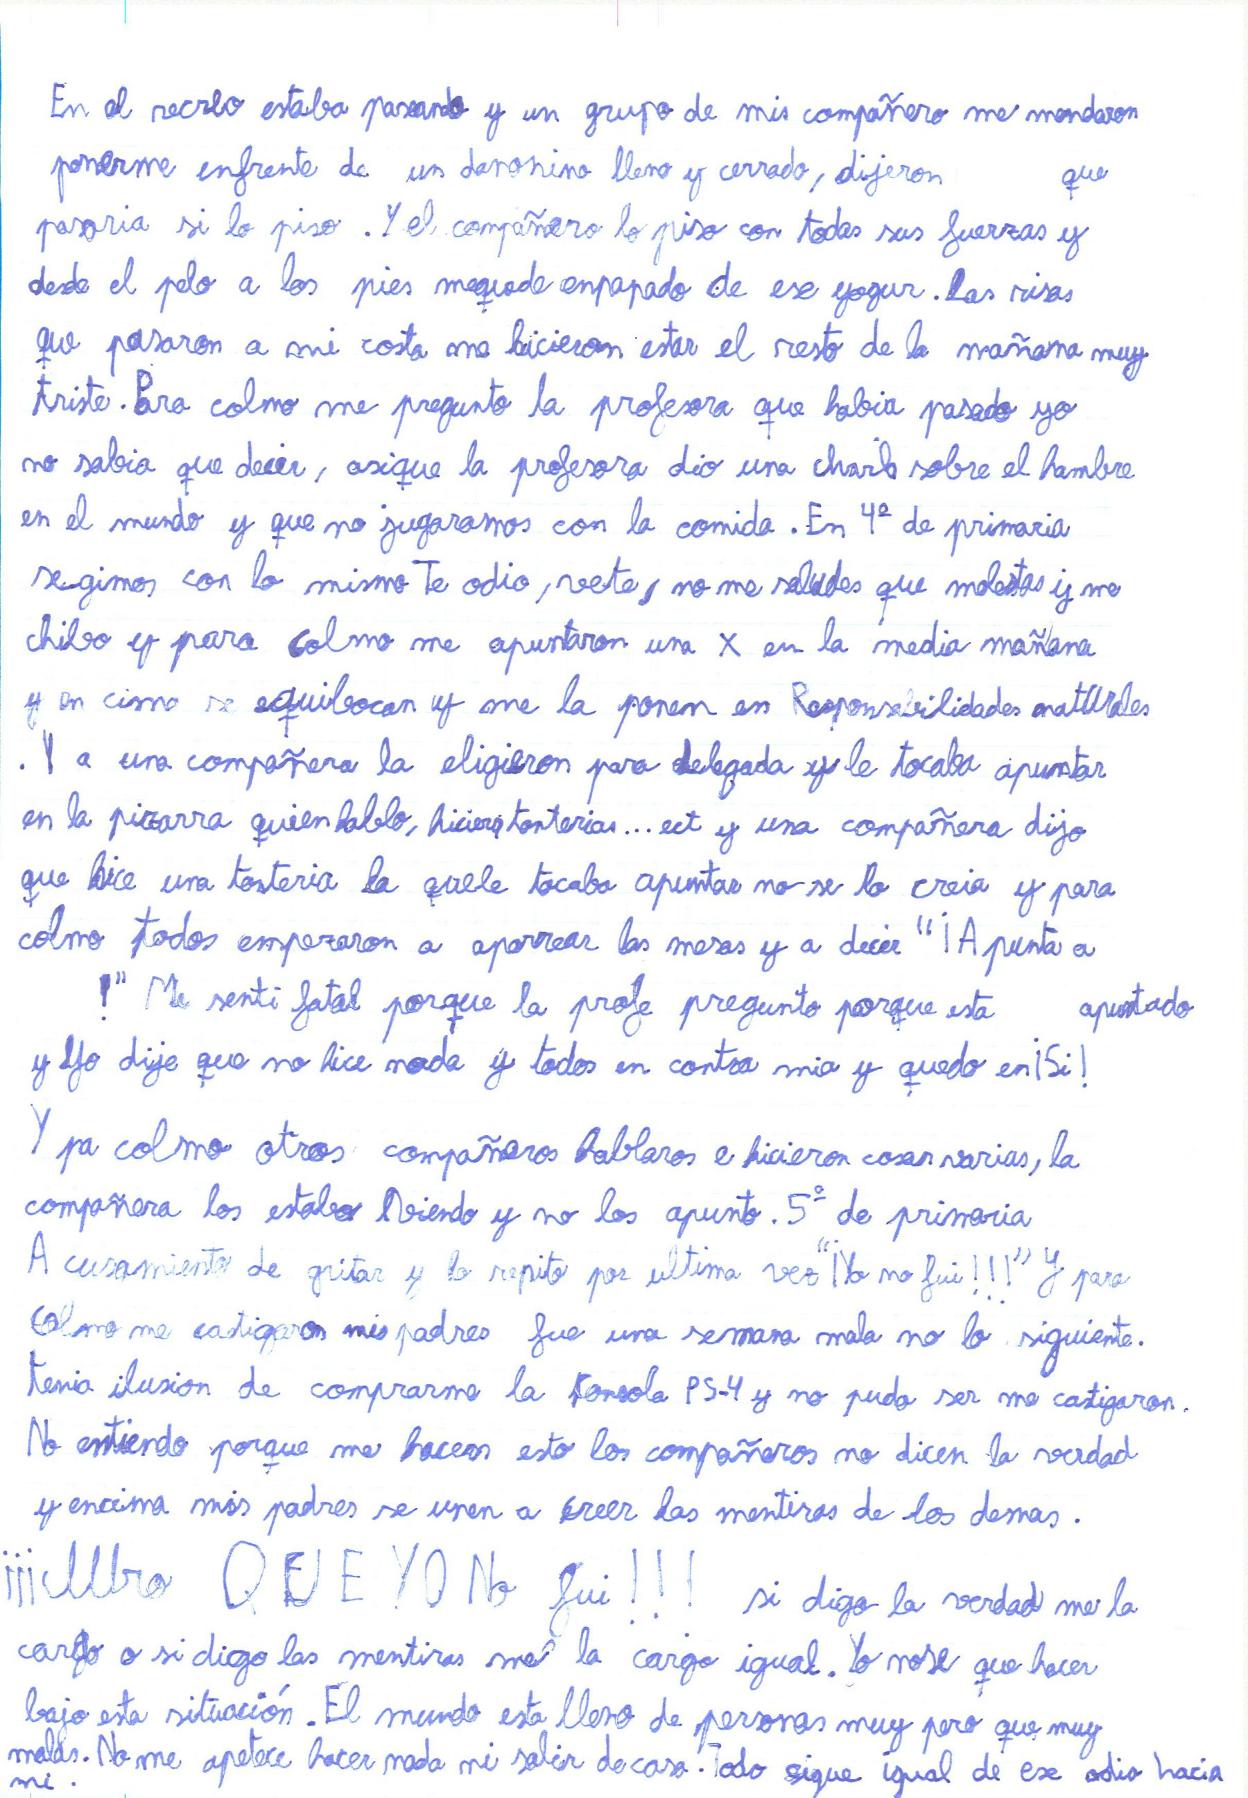 En el recreo estaba paseando y un grupo de mis compañero me mandaron
ponerme enfrente de un danonino lleno y cerrado, dijeron que
pasaria si lo piso. Y el compañero lo piso con todas sus fuerzas y
desde el pelo a los pies mequede enpapado de ese yogur. Las risas
que pasaron a mi costa me hicieron estar el resto de la mañana muy
triste. Para colmo me pregunto la profesora que habia pasado yo
no sabia que decir, asique la profesora dio una charla sobre el hambre
en el mundo y que no jugaramos con la comida. En 4º de primaria
segimos con lo mismo Te odio, vete, no me saludes que molestas y me
chibo y para colmo me apuntaron una X en la media mañana
y en cima se equibocan y me la ponen en Responsabilidades naturales
. Y a una compañera la eligieron para delegada y le tocaba apuntar
en la pizarra quien hablo, hiciera tonterias... ect y una compañera dijo
que hice una tonteria la quele tocaba apuntar no se lo creia y para
colmo todos empezaron a aporrear las mesas y a decir "¡Apunta a
!" Me senti fatal porque la profe pregunto porque esta apuntado
y Yo dije que no hice nada y todos en contra mia y quedo en ¡Si!
Y pa colmo otros compañeros hablaros e hicieron cosas varias, la
compañera los estaba viendo y no los apunto. 5º de primaria
Acusamiento de gritar y lo repito por ultima vez "¡Yo no fui!!!" Y para
colmo me castigaron mis padres fue una semana mala no lo siguiente.
tenia ilusion de comprarme la Consola PS-4 y no pudo ser me castigaron.
No entiendo porque me hacen esto los compañeros no dicen la verdad
y encima mis padres se unen a creer las mentiras de los demas.
QUE YO No fui!!! si digo la verdad me la
cargo o si digo las mentiras me la cargo igual. Yo nose que hacer
bajo esta situación. El mundo esta lleno de personas muy pero que muy
malas. No me apetece hacer nada ni salir de casa. Todo sigue igual de ese odio hacia
mi.